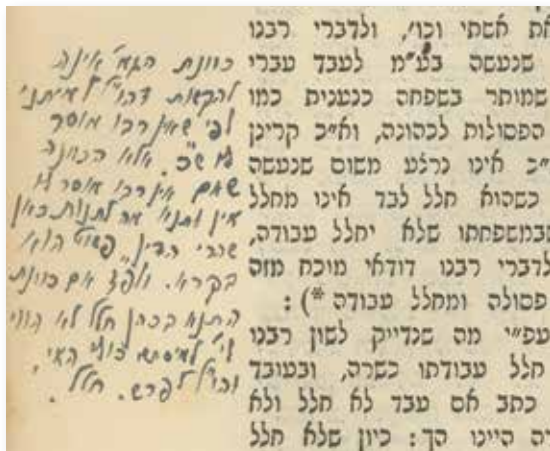 את אשתי וכו', ולדברי רבנו
שנעשה בע"מ לעבד עברי
שמותר בשפחה כנענית כמו
הפסולות לכהונה, וא"כ קרינן
"כ אינו נרצע משום שנעשה
כשהוא חלל לבד אינו מחלל
שבמשפחתו שלא יחלל עבודה,
לדברי רבנו דודאי מוכח מזה
פסולה ומחלל עבודה *):
עפ"י מה שנדייק לשון רבנו
חלל עבודתו כשרה, ובעובד
כתב אם עבד לא חלל ולא
היינו הך: כיון שלא חלל
כוונת הגמ' אינה
להקשות דהו"ל למיתני
לפי שאין רבו מוסר
לו אלא הכוונה
שאם אין רבו מוסר לו
אין מה לתנות כאן
שהרי הדין פשוט הוא
בקרא. ולפ"ז אם כוונת
התנא בכהן חלל לא הווי
לי' למיסתם כולי האי,
והו"ל לפרש. חלל.